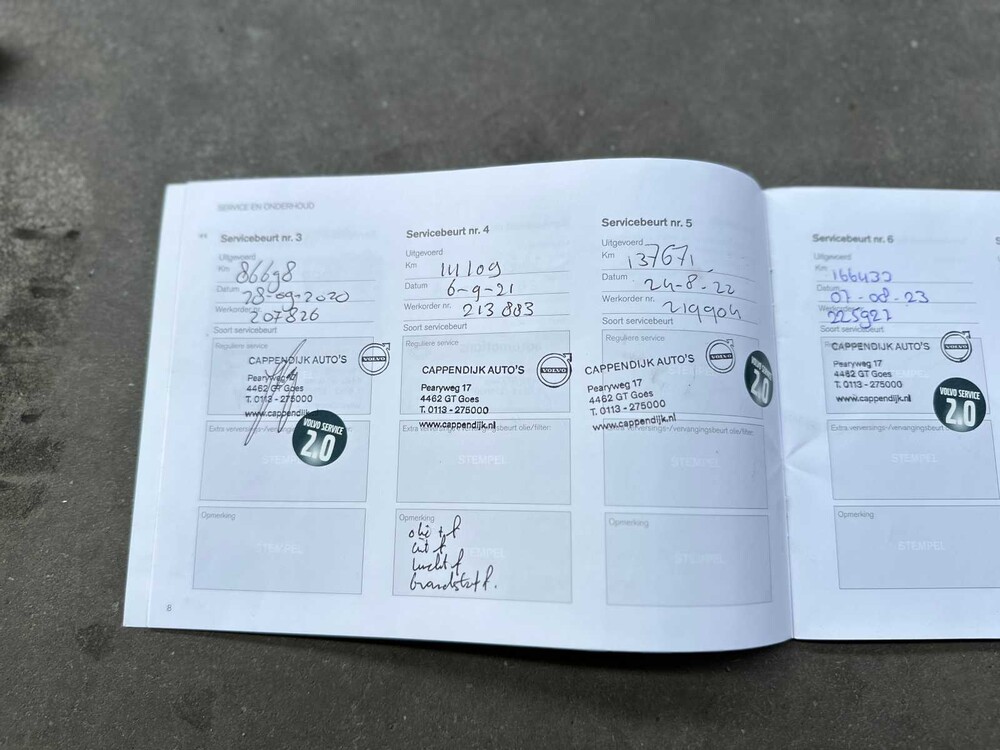 SERVICE EN ONDERHOUD
Servicebeurt nr. 3
Uitgevoerd
Km 86698
Datum 28-09-2020
Werkorder nr. 207826
Soort servicebeurt
Reguliere service
CAPPENDIJK AUTO'S VOLVO
Pearyweg 17
4462 GT Goes
T. 0113 - 275000
www.cappendijk.nl
VOLVO SERVICE
2.0
Extra verversings-/vervangingsbeurt olie/filter:
STEMPEL
Opmerking
STEMPEL
8
Servicebeurt nr. 4
Uitgevoerd
Km 111109
Datum 6-9-21
Werkorder nr. 213883
Soort servicebeurt
Reguliere service
CAPPENDIJK AUTO'S VOLVO
Pearyweg 17
4462 GT Goes
T. 0113 - 275000
www.cappendijk.nl
Extra verversings-/vervangingsbeurt olie/filter:
STEMPEL
Opmerking
STEMPEL
olie + f
int f
lucht f
brandstof f.
Servicebeurt nr. 5
Uitgevoerd
Km 137671
Datum 24-8-22
Werkorder nr. 219904
Soort servicebeurt
Reguliere service
CAPPENDIJK AUTO'S VOLVO
Pearyweg 17
4462 GT Goes
T. 0113 - 275000
www.cappendijk.nl
VOLVO SERVICE
2.0
Extra verversings-/vervangingsbeurt olie/filter:
STEMPEL
Opmerking
STEMPEL
Servicebeurt nr. 6
Uitgevoerd
Km 166433
Datum 07-08-23
Werkorder nr. 225927
Soort servicebeurt
Reguliere service
CAPPENDIJK AUTO'S VOLVO
Pearyweg 17
4462 GT Goes
T. 0113 - 275000
www.cappendijk.nl
VOLVO SERVICE
2.0
Extra verversings-/vervangingsbeurt
STEMPEL
Opmerking
STEMPEL